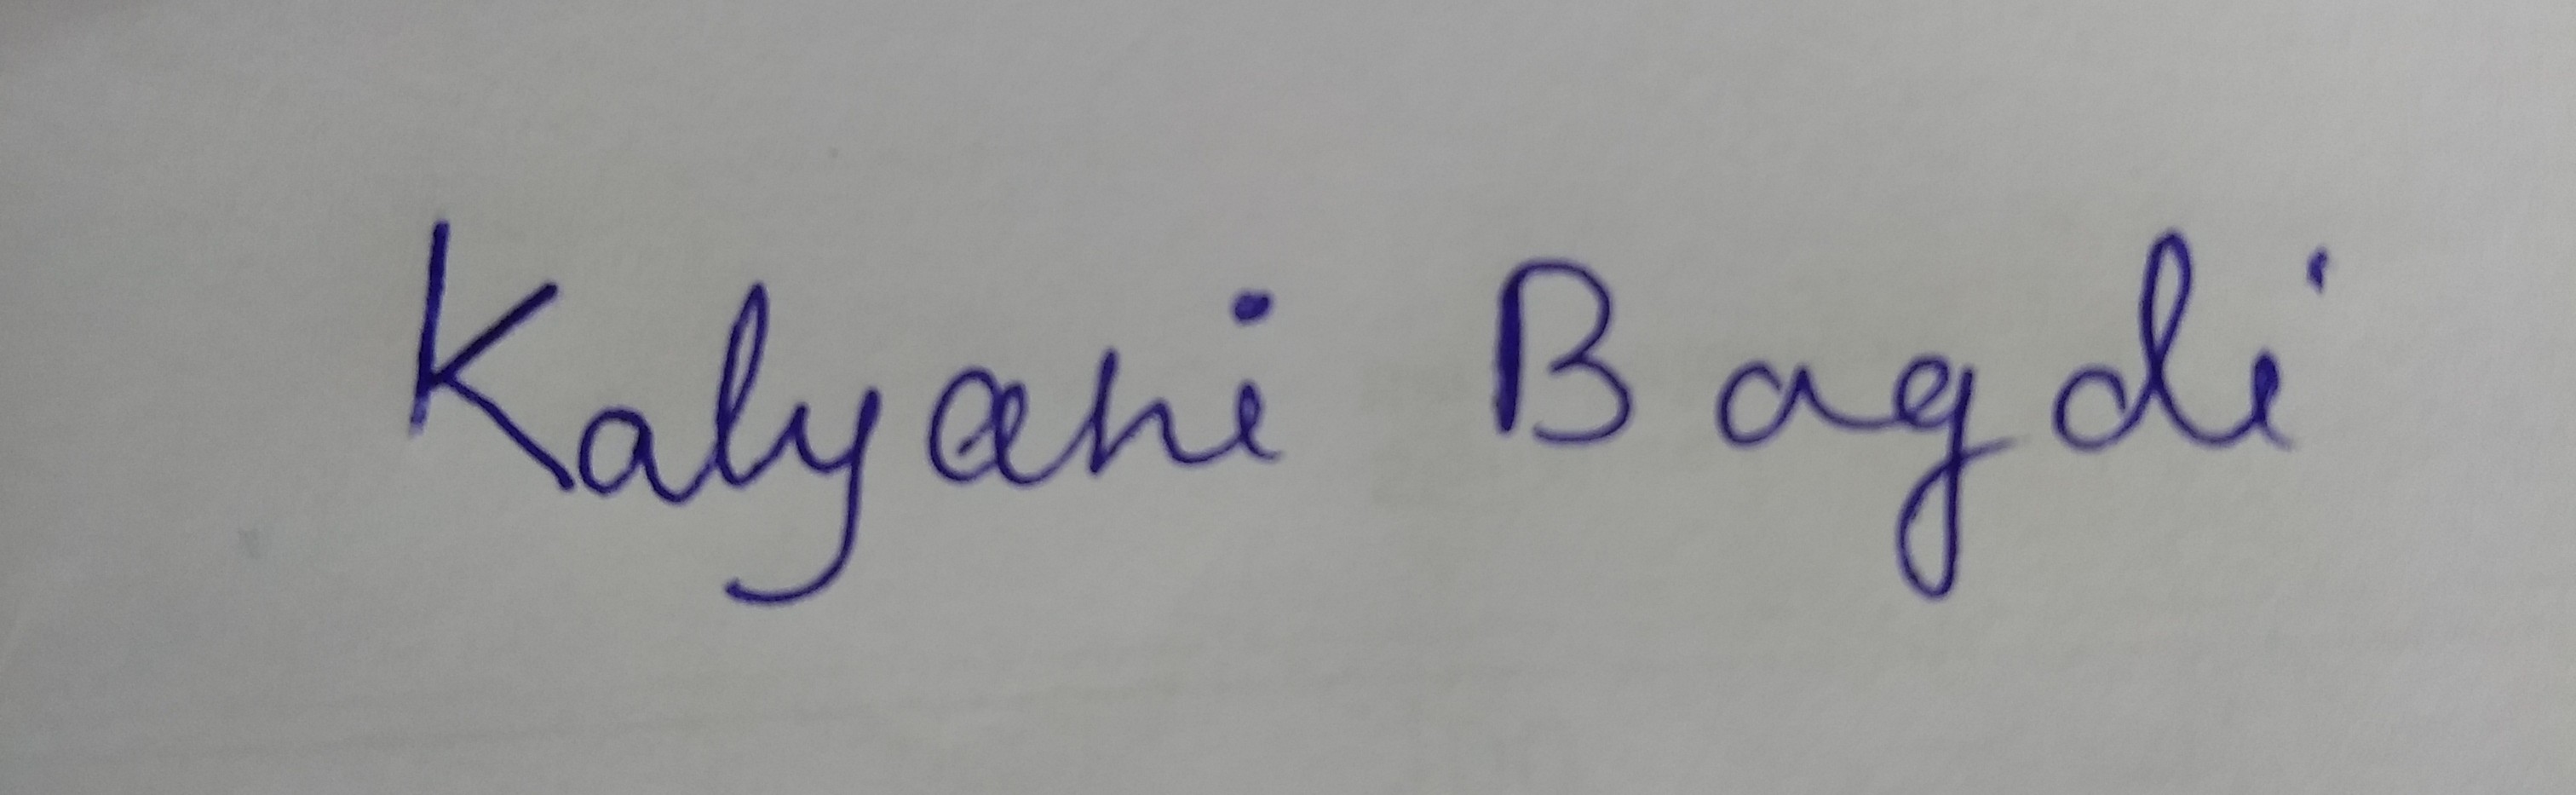 Kalyani Bagdi